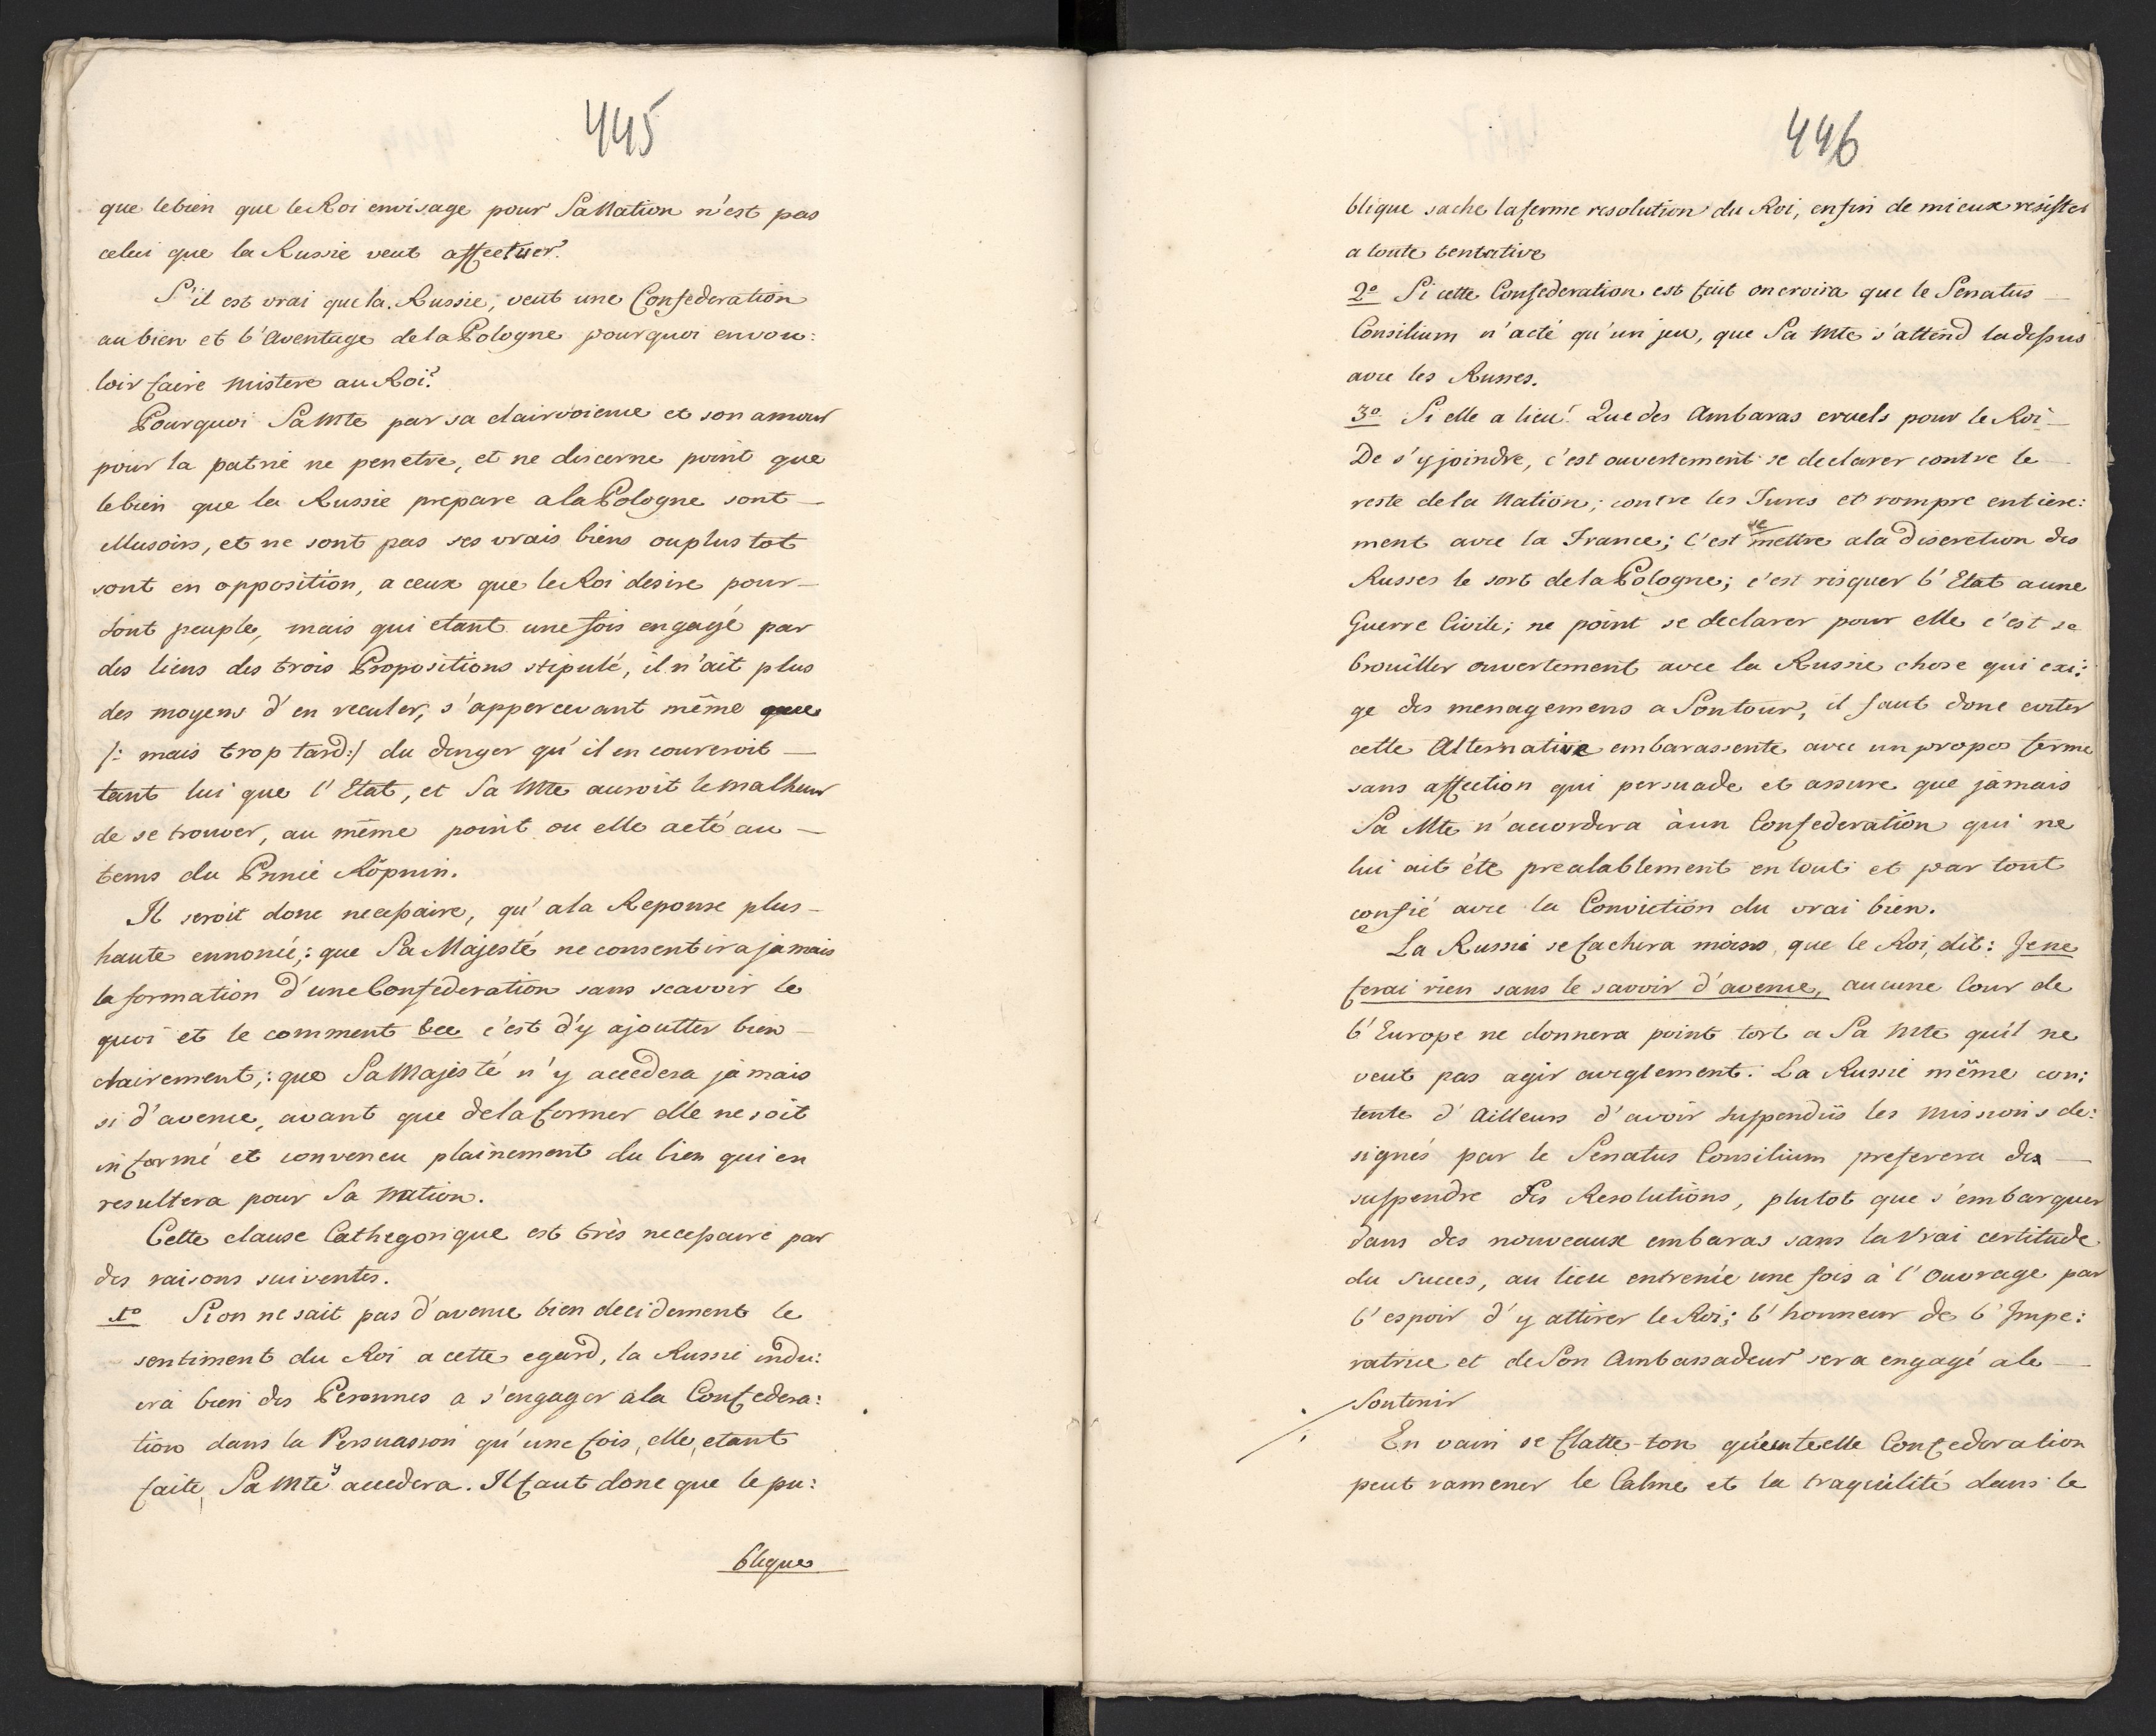 445
que le bien que le Roi envisage pour Sa Nation n'est pas
celui que la Russie veut affectuer?
S'il est vrai que la Russie, veut une Confederation
au bien et l'Aventage de la Pologne pourquoi en vou:
loir faire mistere au Roi?
Pourquoi Sa Mte par sa clairvoience et son amour
pour la patrie ne penetre, et ne discerne point que
le bien que la Russie prepare a la Pologne sont —
illusoirs, et ne sont pas ses vrais biens ou plus tot
sont en opposition, a ceux que le Roi desire pour —
sont peuple, mais qui etant une fois engagé par
des liens des trois Propositions stipulé, il n'ait plus
des moyens d'en reculer, s'appercevant même que
/: mais trop tard:/ du danger qu'il en coureroit —
tant lui que l'Etat, et Sa Mte auroit le malheur
de se trouver, au même point ou elle a eté au —
tems du Prince Röpnin.
Il seroit donc necessaire, qu'a la Reponse plus —
haute ennoncé,: que Sa Majesté ne consentira jamais
la formation d'une Confederation sans scavoir le
quoi et le comment &cc c'est d'y ajoutter bien —
clairement,: que Sa Majesté n'y accedera jamais
si d'avence, avant que de la former elle ne soit
informé et convencu plainement du bien qui en
resultera pour Sa Nation.
Cette clause Cathegorique est très necessaire par
des raisons suiventes.
1o Si on ne sait pas d'avence bien decidement le
sentiment du Roi a cette egard, la Russie indu:
ira bien des Personnes a s'engager a la Confedera:
tion dans la Persuasson qu'une fois, elle, etant
faite, Sa Mte y accedera. Il faut donc que le pu:
blique
446
blique sache la ferme resolution du Roi, enfin de mieux resister
a toute tentative
2o Si cette Confederation est feüt on croira que le Senatus —
Consilium n'a eté qu'un jeu, que Sa Mte s'attend la dessus
avec les Russes.
3o Si elle a lieu! Que des Ambaras cruels pour le Roi —
De s'y joindre, c'est ouvertement se declarer contre le —
reste de la Nation; contre les Turcs et rompre entiere:
ment avec la France; c'est se mettre a la discretion des
Russes le sort de la Pologne; c'est risquer l'Etat a une
Guerre Civile; ne point se declarer pour elle c'est se
brouiller ouvertement avec la Russie chose qui exi:
ge des menagemens a Son tour, il faut donc eviter
cette Alternative embarassente avec un propos ferme
sans affection qui persuade et assure que jamais
Sa Mte n'accordera à un Confederation qui ne
lui ait été prealablement en tout et par tout
confié avec la Conviction du vrai bien.
La Russie se fachera moins, que le Roi, dit: Je ne
ferai rien sans le savoir d'avence, aucune Cour de
l'Europe ne donnera point tort a Sa Mte qu'il ne
veut pas agir aveglement. La Russie même con:
tente d'Ailleurs d'avoir suspendüs les missions de:
signés par le Senatus Consilium preferera de —
suspendre Ses Resolutions, plutot que s'embarquer
dans des nouveaux embaras sans la vrai certitude
du Succes, au lieu entrenie une fois à l'Ouvrage par
l'espoir d'y attirer le Roi; l'honneur de l'Impe:
ratrice et de Son Ambassadeur sera engagé a le —
Soutenir
En vain se flatte-ton qu'une telle Confederation
peut ramener le Calme et la traquilité dans le